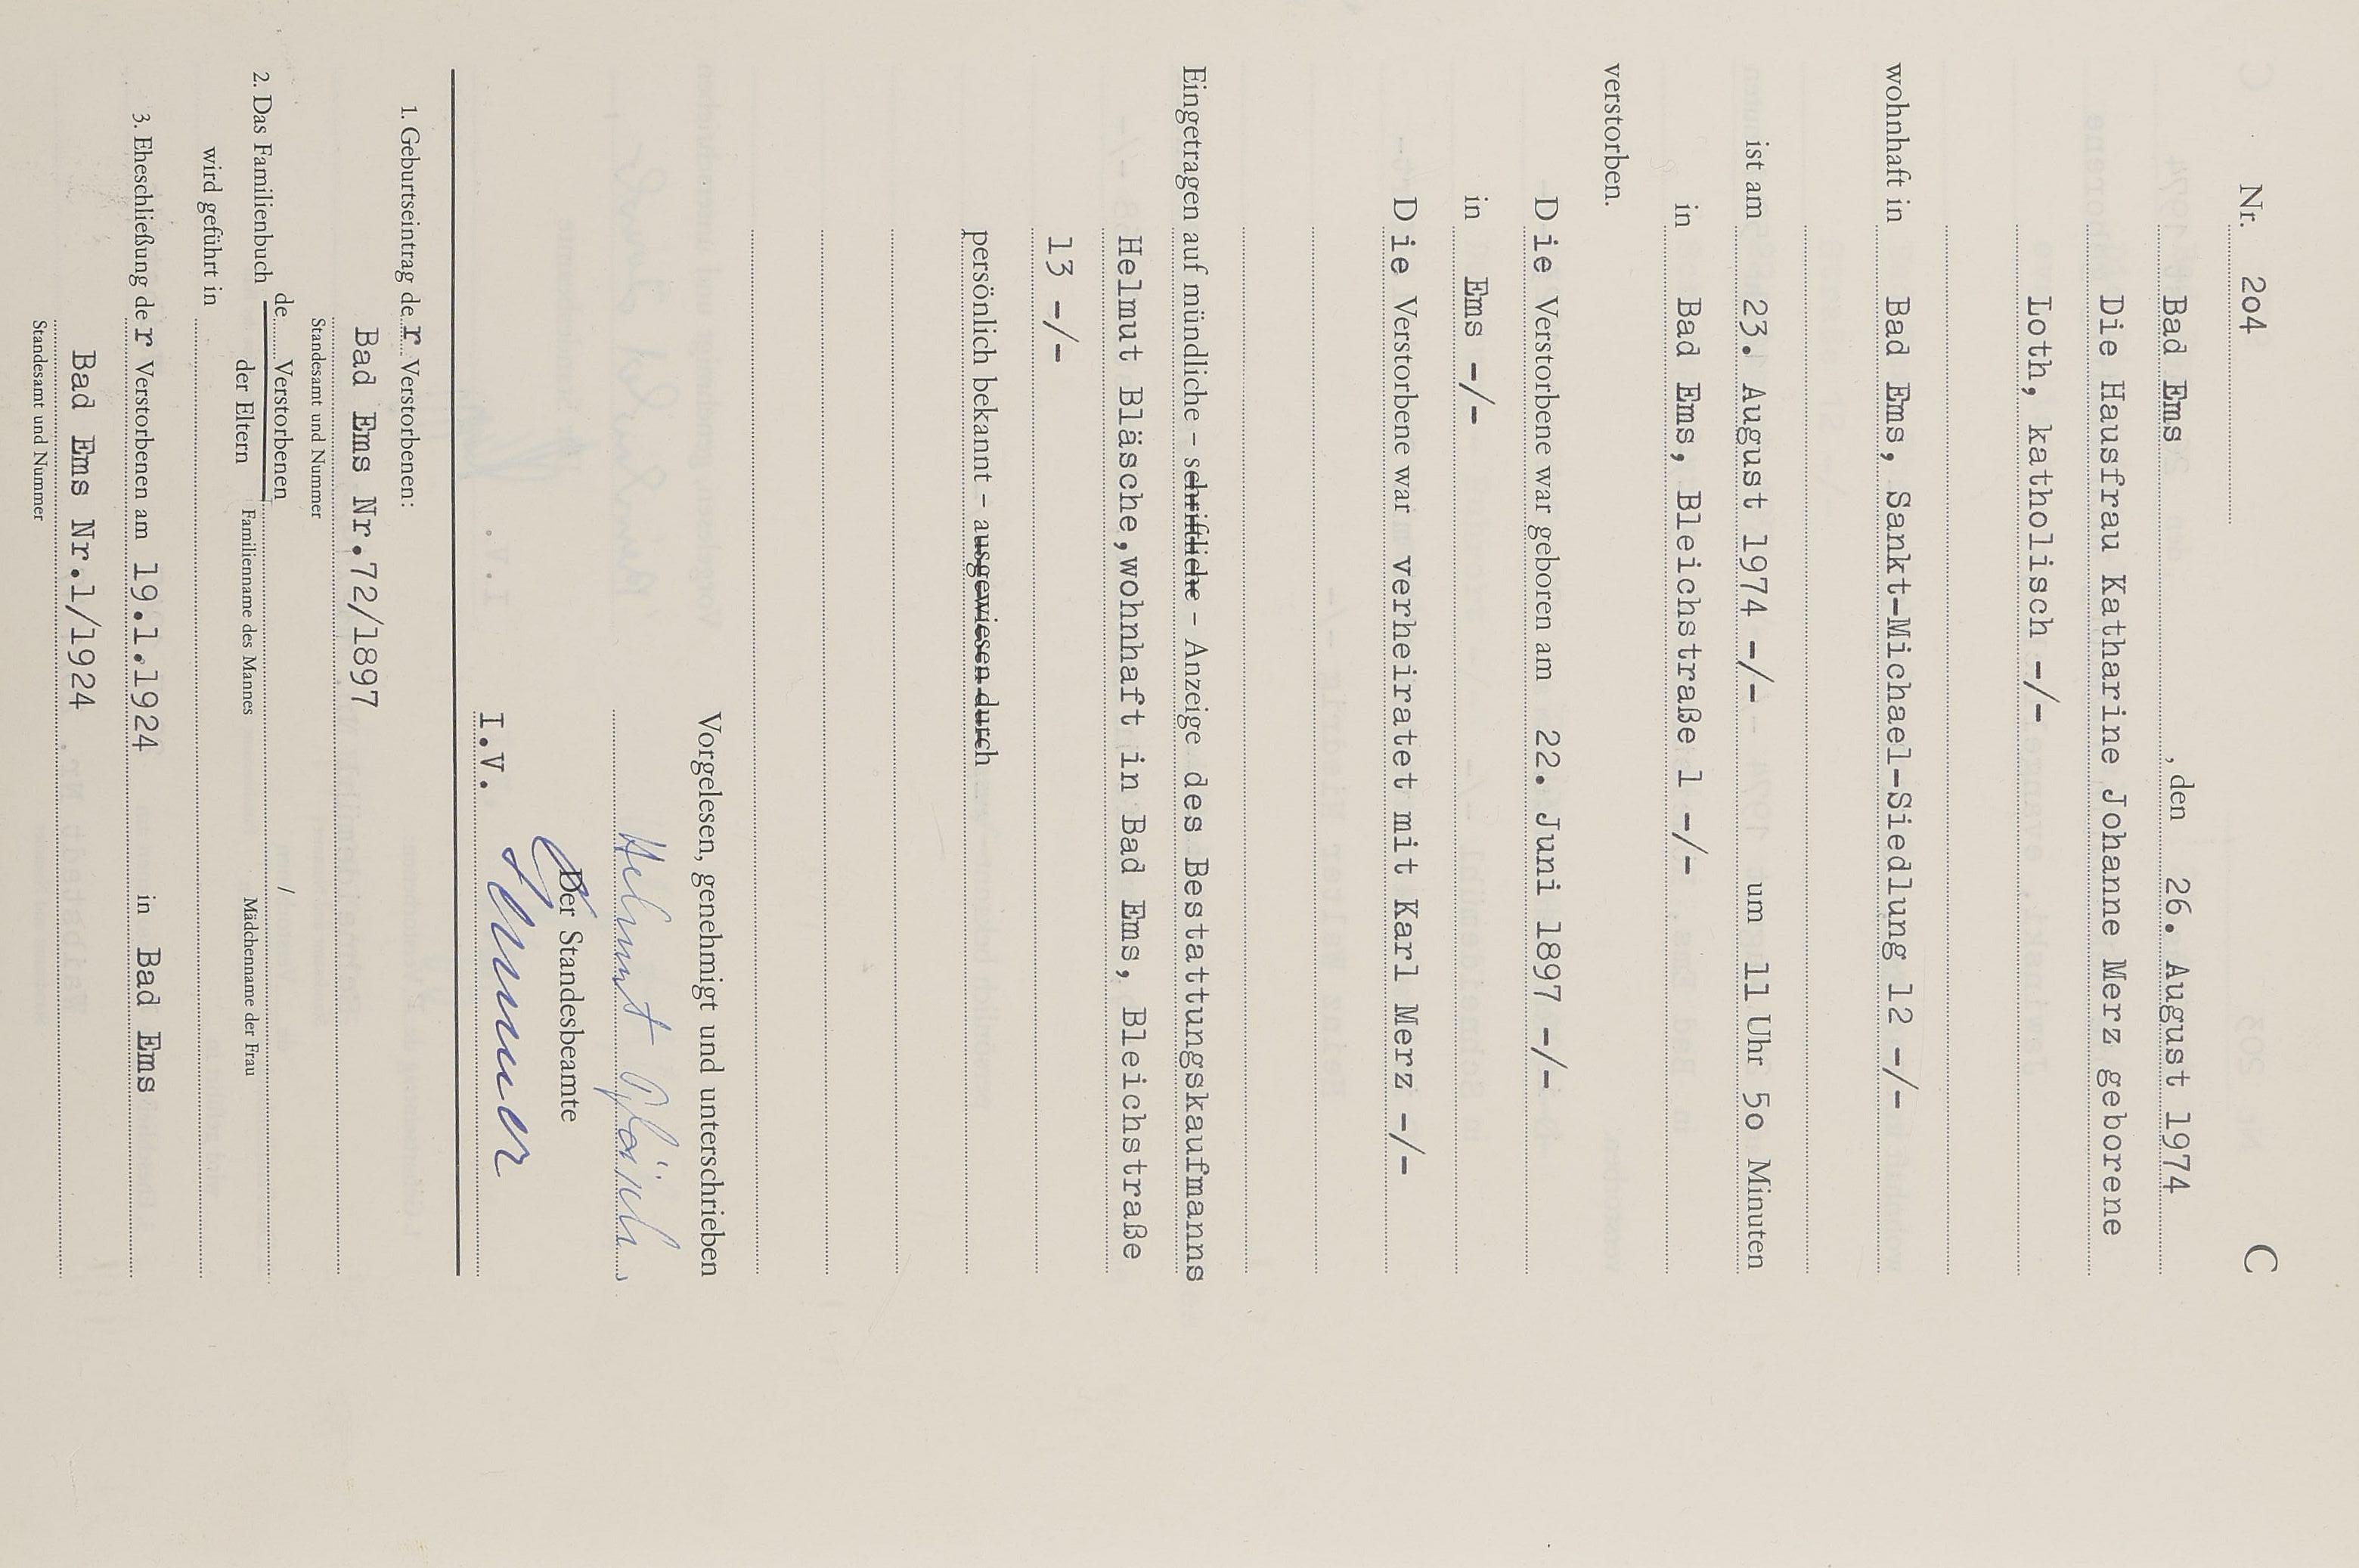 C
Nr. 2o4
Bad Ems , den 26. August 1974
Die Hausfrau Katharine Johanne Merz geborene
Loth, katholisch -/-
wohnhaft in Bad Ems, Sankt-Michael-Siedlung 12 -/-
ist am 23. August 1974 -/- um 11 Uhr 5o Minuten
in Bad Ems, Bleichstraße 1 -/-
verstorben.
Die Verstorbene war geboren am 22. Juni 1897 -/-
in Ems -/-
Die Verstorbene war verheiratet mit Karl Merz -/-
Eingetragen auf mündliche - schriftliche - Anzeige des Bestattungskaufmanns
Helmut Bläsche,wohnhaft in Bad Ems, Bleichstraße
13 -/-
persönlich bekannt - ausgewiesen durch
Vorgelesen, genehmigt und unterschrieben
Helmut Bläsche
Der Standesbeamte
I.V.
1. Geburtseintrag der Verstorbenen:
Bad Ems Nr.72/1897
Standesamt und Nummer
de Verstorbenen /
2. Das Familienbuch
der Eltern Familienname des Mannes Mädchenname der Frau
wird geführt in
3. Eheschließung der Verstorbenen am 19.1.1924 in Bad Ems
Bad Ems Nr.1/1924
Standesamt und Nummer